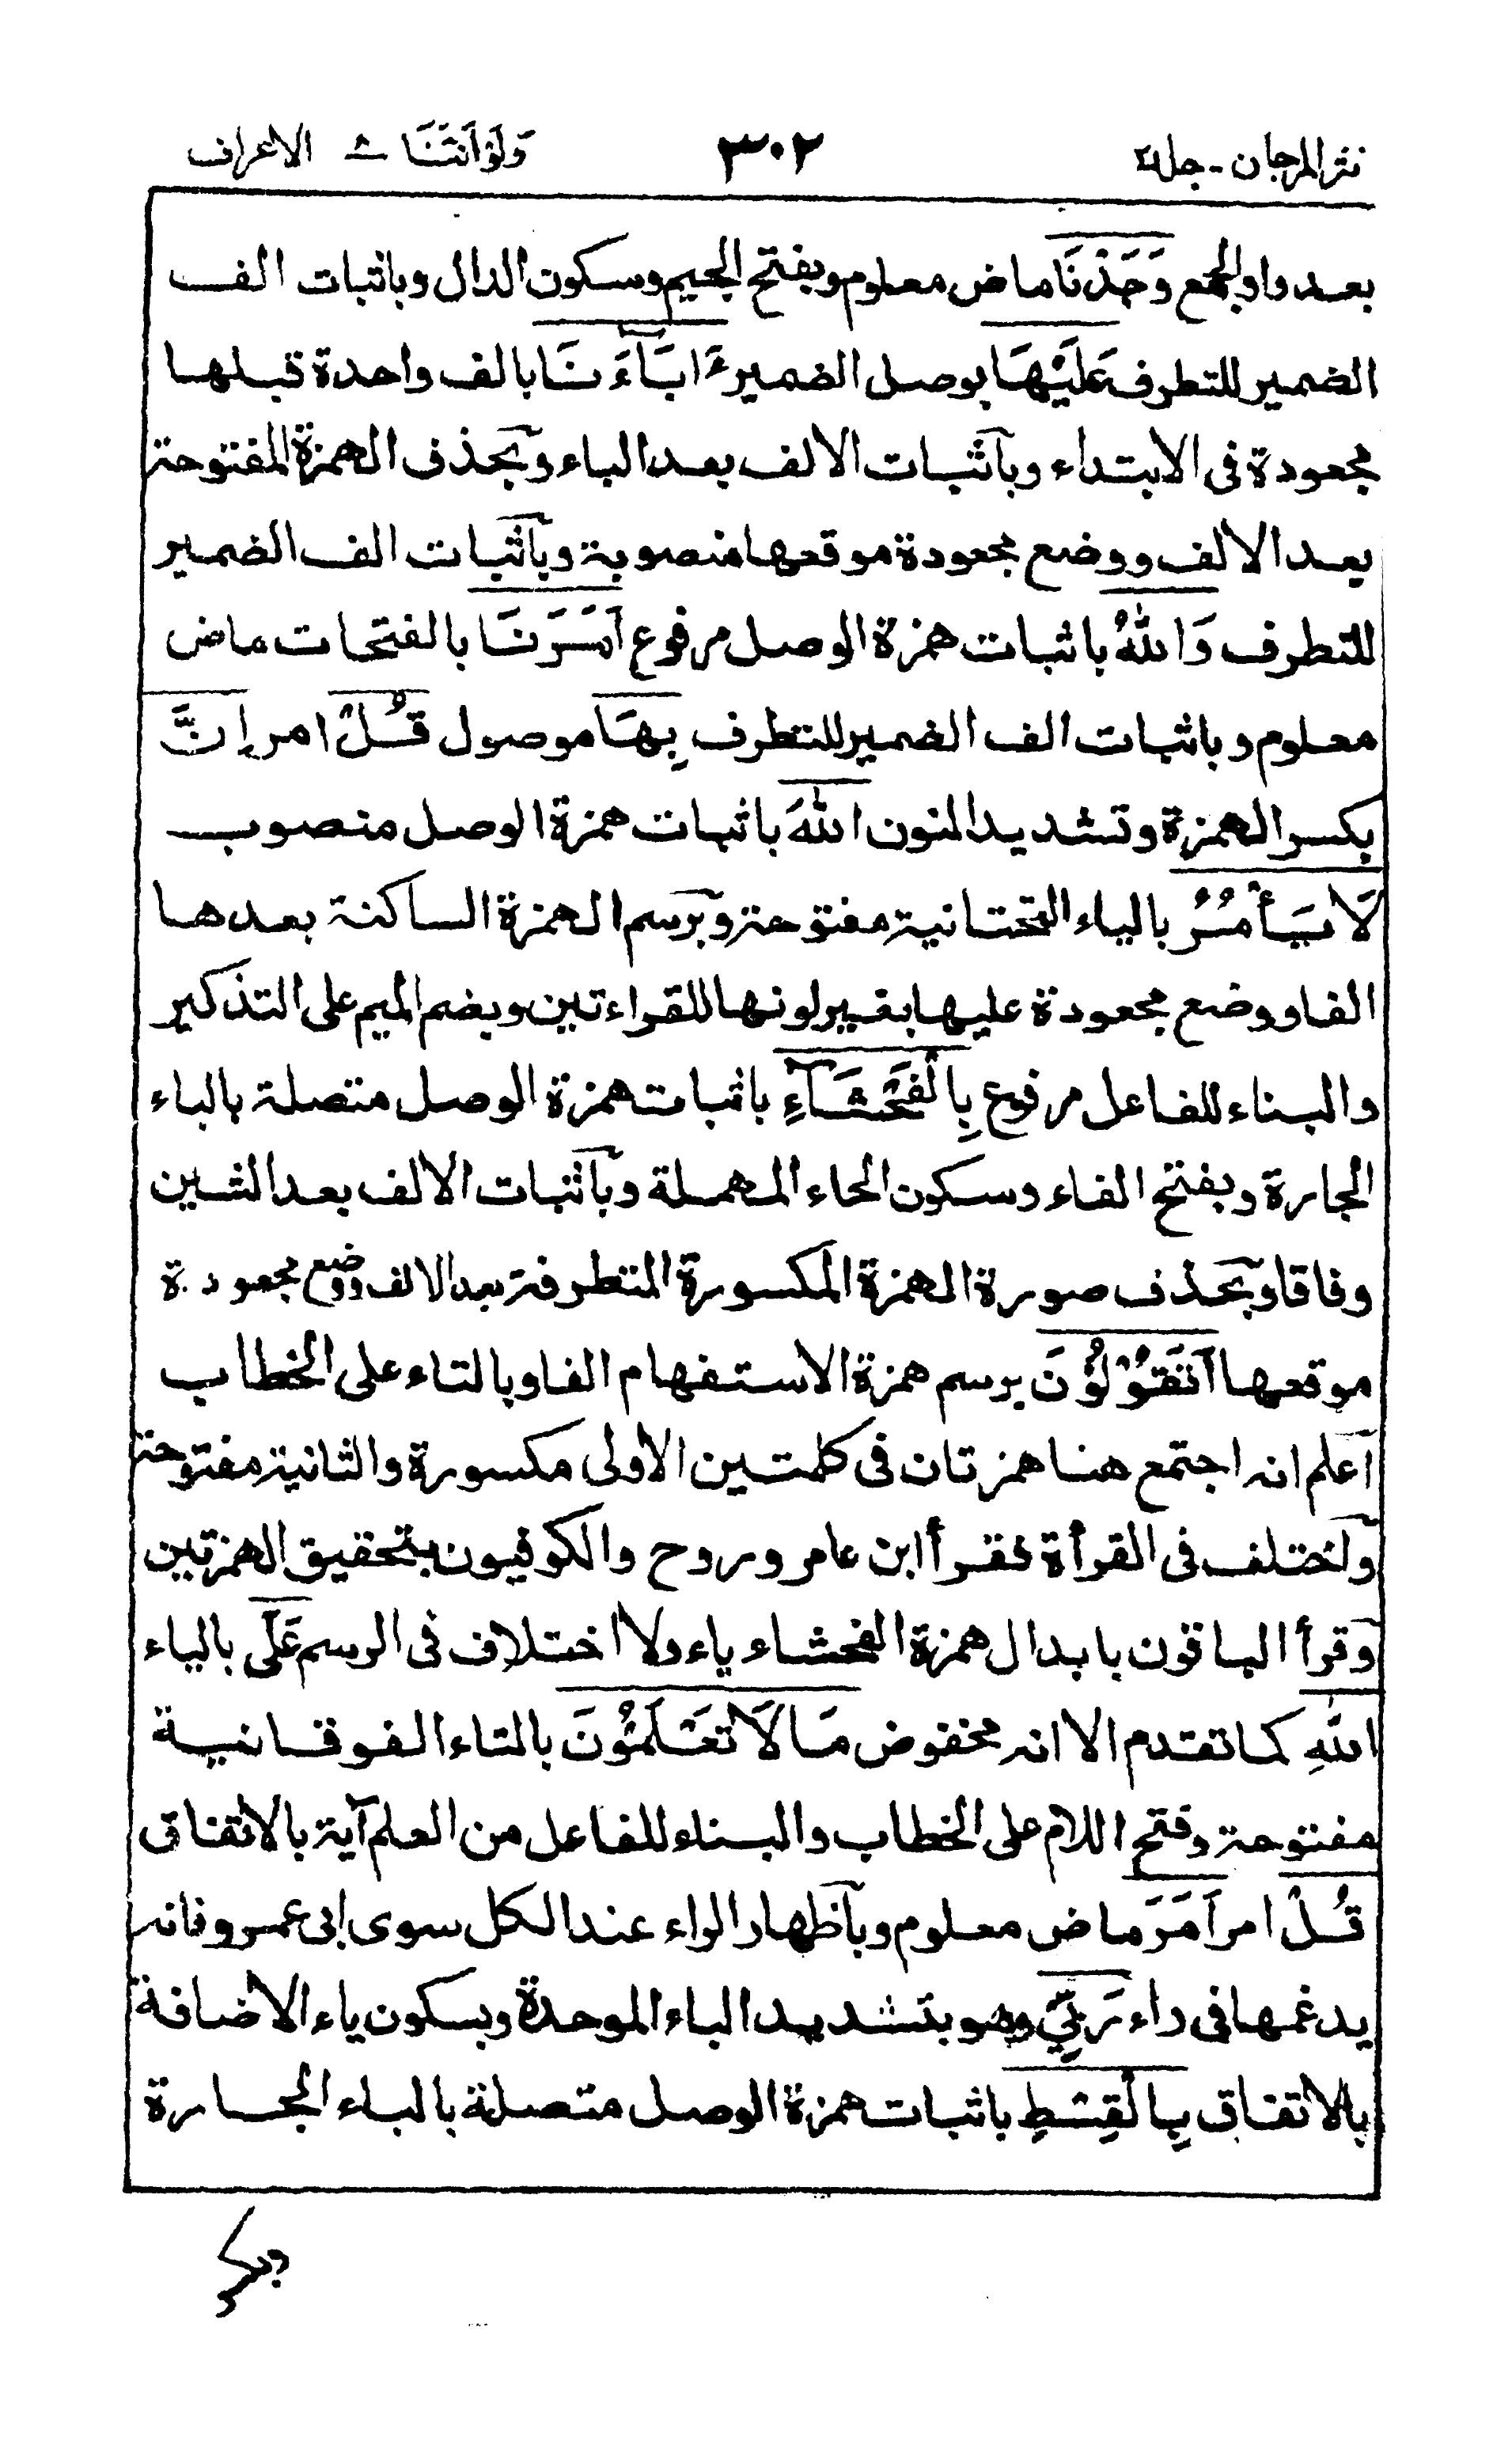 نثر المرجان - جلد ٢ ٣٠٢ وَلَوْ اَنَّنَا ٨ الاعراف
بعد واو الجمع وَجَدْنَا ماض معلوم وبفتح الجيم وسكون الدال وباثبات الف
الضمير للتطرف عَلَيْهَا بوصل الضمير ءَابَآءَنَا بالف واحدة قبلها
مجعودة فى الابتداء وبآثبات الالف بعد الباء وبحذف الهمزة المفتوحة
بعد الالف ووضع مجعودة موقعها منصوبة وبآثبات الف الضمير
للتطرف وَاللّٰهُ باثبات همزة الوصل مرفوع اَمَرَنَا بالفتحات ماض
معلوم وباثبات الف الضمير للتطرف بِهَا موصول قُلْ امر اِنَّ
بكسر الهمزة وتشديد النون اللّٰهَ باثبات همزة الوصل منصوب
لَا يَأْمُرُ بالياء التحتانية مفتوحة وبرسم الهمزة الساكنة بعدها
الفا ووضع مجعودة عليها بغير لونها للقراءتين وبضم الميم على التذكير
والبناء للفاعل مرفوع بِالْفَحْشَآءِ باثبات همزة الوصل متصلة بالباء
الجارة وبفتح الفاء وسكون الحاء المهملة وبآثبات الالف بعد الشين
وفاقا وبحذف صورة الهمزة المكسورة المتطرفة بعد الالف ووضع مجعودة
موقعها اَتَقُوْلُوْنَ برسم همزة الاستفهام الفا وبالتاء على الخطاب
آعلم انه اجتمع هنا همزتان فى كلمتين الاولى مكسورة والثانية مفتوحة
وآختلف فى القرأة فقرأ ابن عامر وروح والكوفيون بتحقيق الهمزتين
وقرأ الباقون بابدال همزة الفحشاء ياء ولا اختلاف فى الرسم عَلَى بالياء
اللّٰهِ كما تقدم الا انه مخفوض مَا لَا تَعْلَمُوْنَ بالتاء الفوقانية
مفتوحة وفتح اللام على الخطاب والبناء للفاعل من العلم آية بالاتفاق
قُلْ امر اَمَرَ ماض معلوم وبآظهار الراء عند الكل سوى ابى عمرو فانه
يدغمها فى راء رَبِّيْ وهو بتشديد الباء الموحدة وبسكون ياء الاضافة
بالاتفاق بِالْقِسْطِ باثبات همزة الوصل متصلة بالباء الجارة